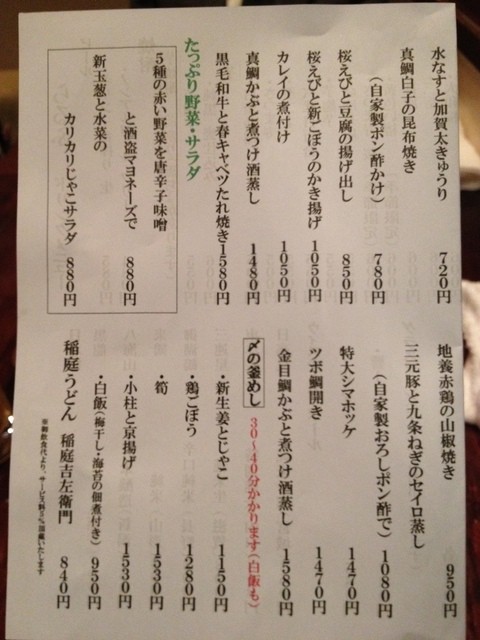 水なすと加賀太きゅうり 720円
真鯛白子の昆布焼き
(自家製ポン酢かけ) 780円
桜えびと豆腐の揚げ出し 850円
桜えびと新ごぼうのかき揚げ 1050円
カレイの煮付け 1050円
真鯛かぶと煮つけ酒蒸し 1480円
黒毛和牛と春キャベツたれ焼き 1580円
たっぷり野菜・サラダ
5種の赤い野菜を唐辛子味噌
と酒盗マヨネーズで 880円
新玉葱と水菜の
カリカリじゃこサラダ 880円
地養赤鶏の山椒焼き 950円
三元豚と九条ねぎのセイロ蒸し
(自家製おろしポン酢で) 1080円
特大シマホッケ 1470円
ツボ鯛開き 1470円
金目鯛かぶと煮つけ酒蒸し 1580円
〆の釜めし 30〜40分かかります(白飯も)
・新生姜とじゃこ 1150円
・鶏ごぼう 1280円
・筍 1530円
・小柱と京揚げ 1530円
・白飯(梅干し・海苔の佃煮付き) 950円
稲庭うどん 稲庭吉左衛門 840円
※御飲食代より、サービス料5%頂戴いたします